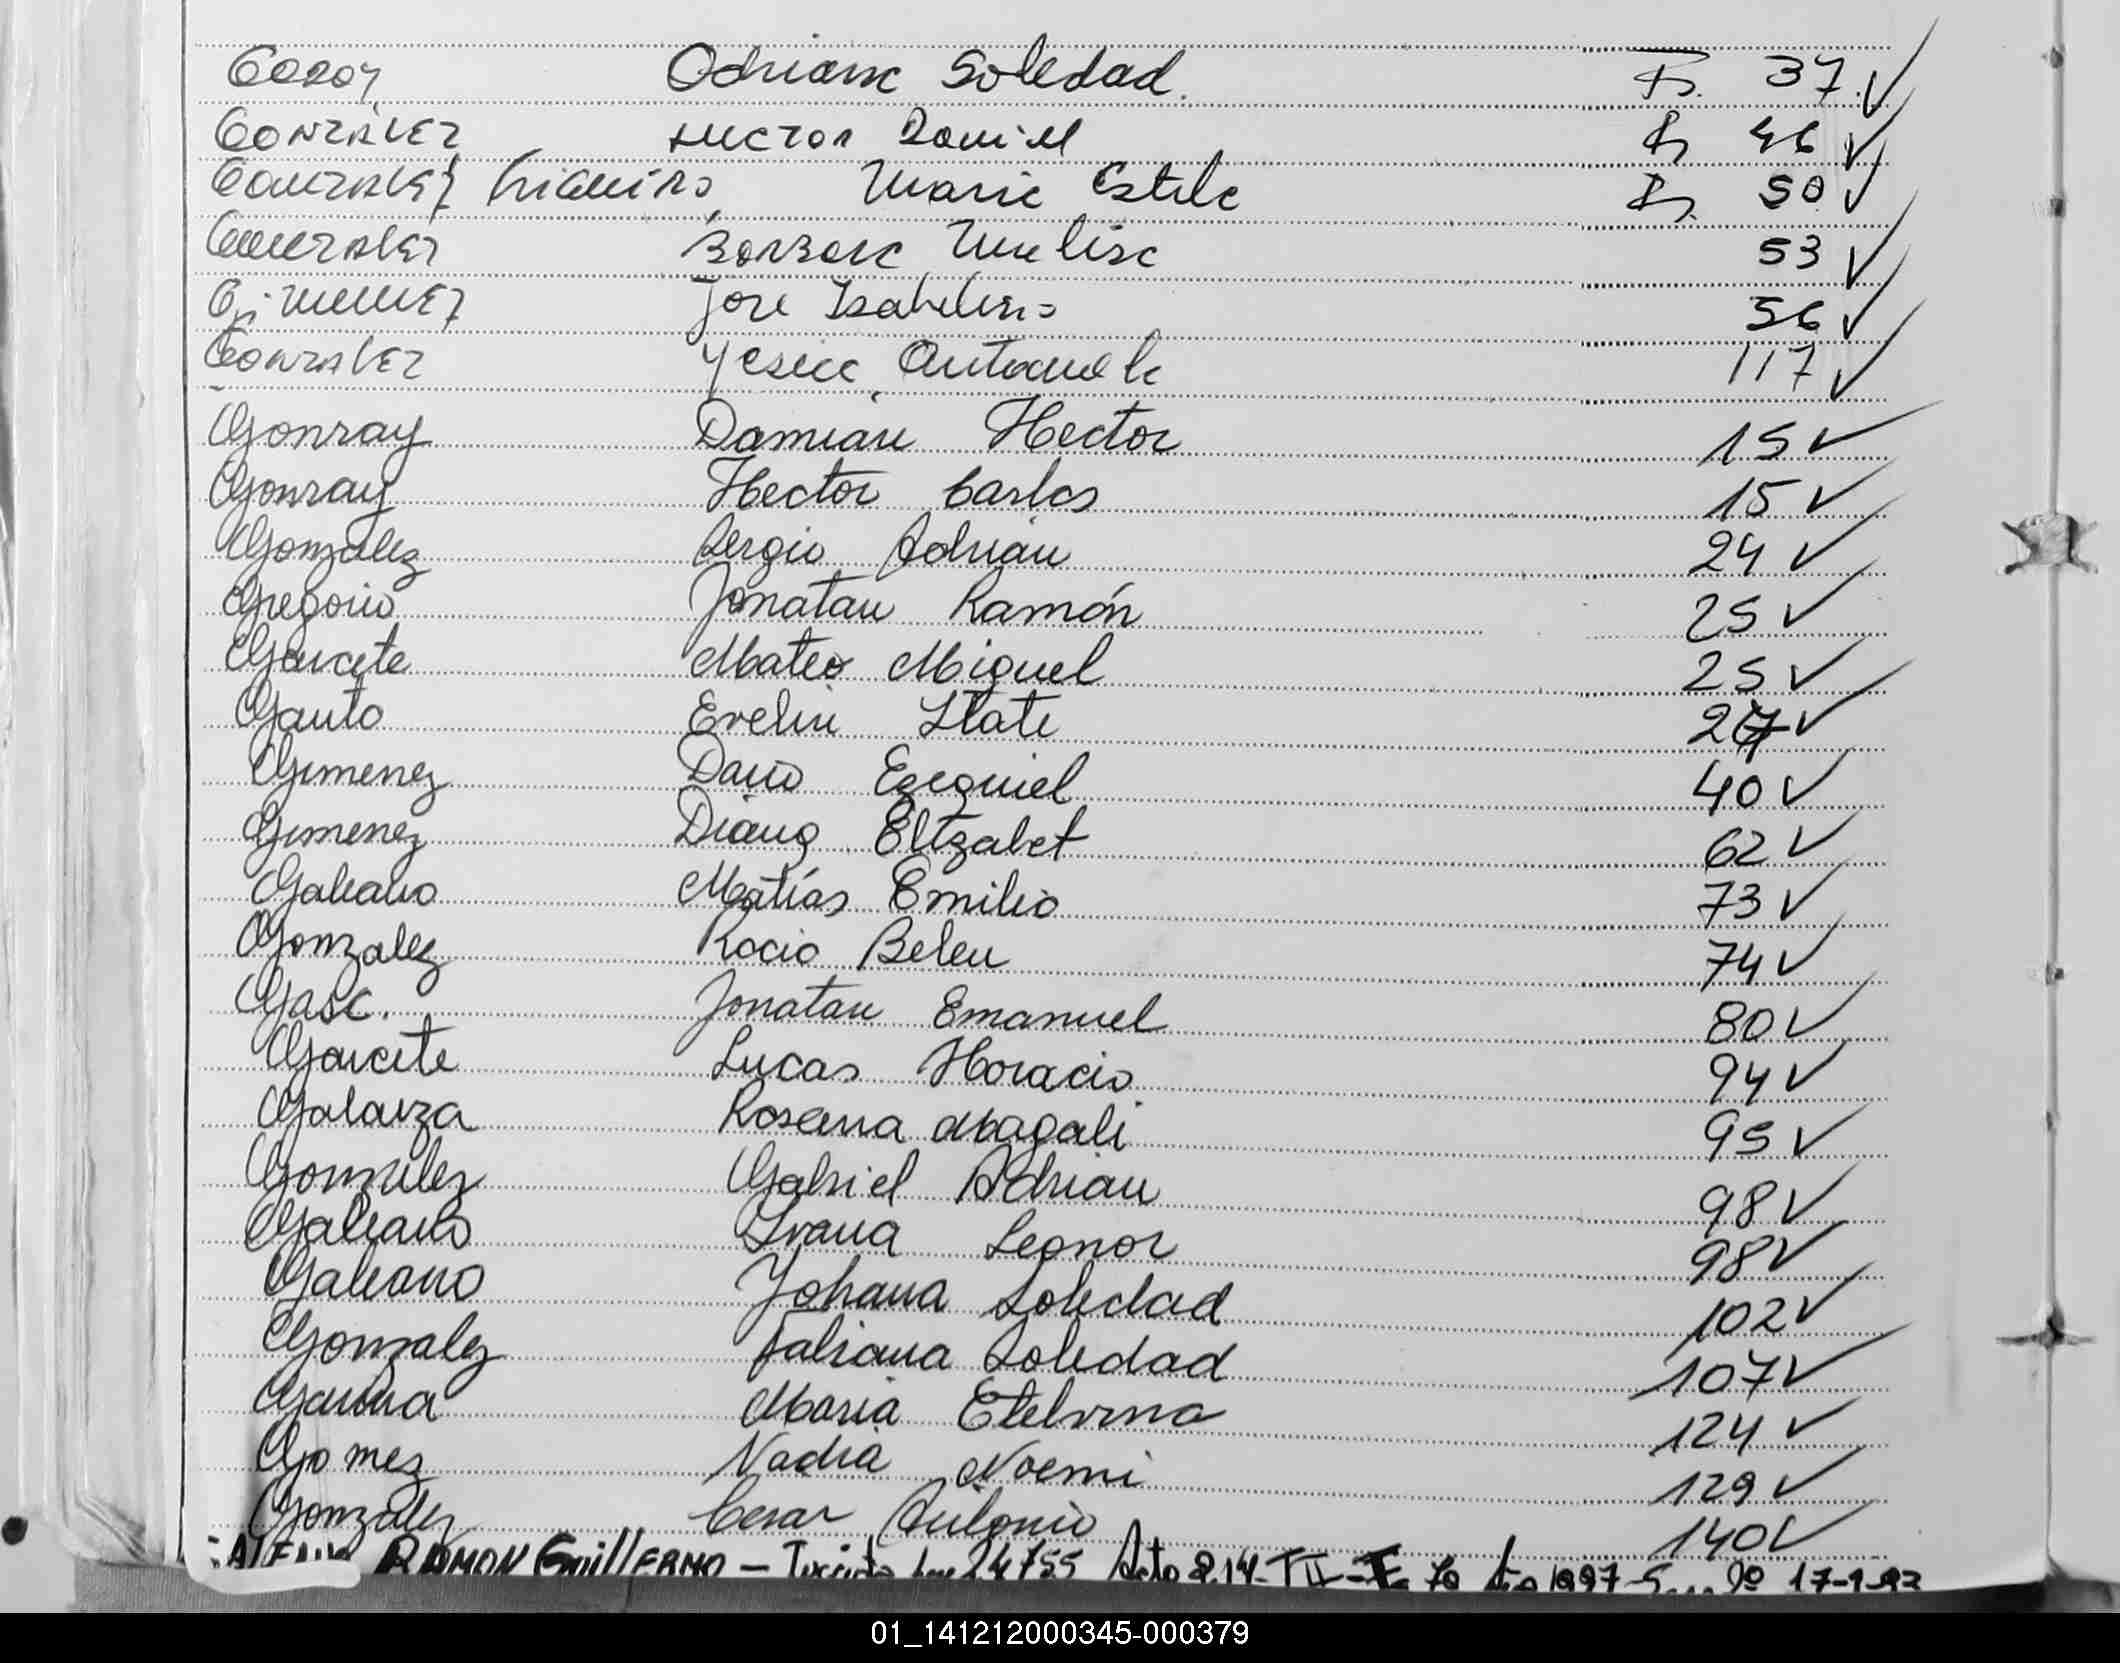 Godoy Adriana Soledad. Fs. 37 ✓
González Hector Daniel Fs 46 ✓
González Maria Estela Fs. 50 ✓
González Barbara Melisa 53 ✓
Gimenez Jose Isabelino 56 ✓
González Yesica Antonela 117 ✓
Gonray Damian Hector 15 ✓
Gonray Hector Carlos 15 ✓
Gonzalez Sergio Adrian 24 ✓
Gregorio Jonatan Ramón 25 ✓
Garcete Mateo Miguel 25 ✓
Gauto Evelin Itati 27 ✓
Gimenez Dario Ezequiel 40 ✓
Gimenez Diana Elizabet 62 ✓
Galeano Matías Emilio 73 ✓
Gonzalez Rocio Belen 74 ✓
Gasc. Jonatan Emanuel 80 ✓
Garcete Lucas Horacio 94 ✓
Galarza Rosana Magali 95 ✓
Gonzalez Gabriel Adrian 98 ✓
Galeano Ivana Leonor 98 ✓
Galeano Johana Soledad 102 ✓
Gonzalez Fabiana Soledad 107 ✓
Maria Etelvina 124 ✓
Gomez Nadia Noemi 129 ✓
Gonzalez Cesar Antonio 140 ✓
RAMON GuillERMO – 24755 Acta 214-TII-F 70 Año 1997 17-1-92
01_141212000345-000379